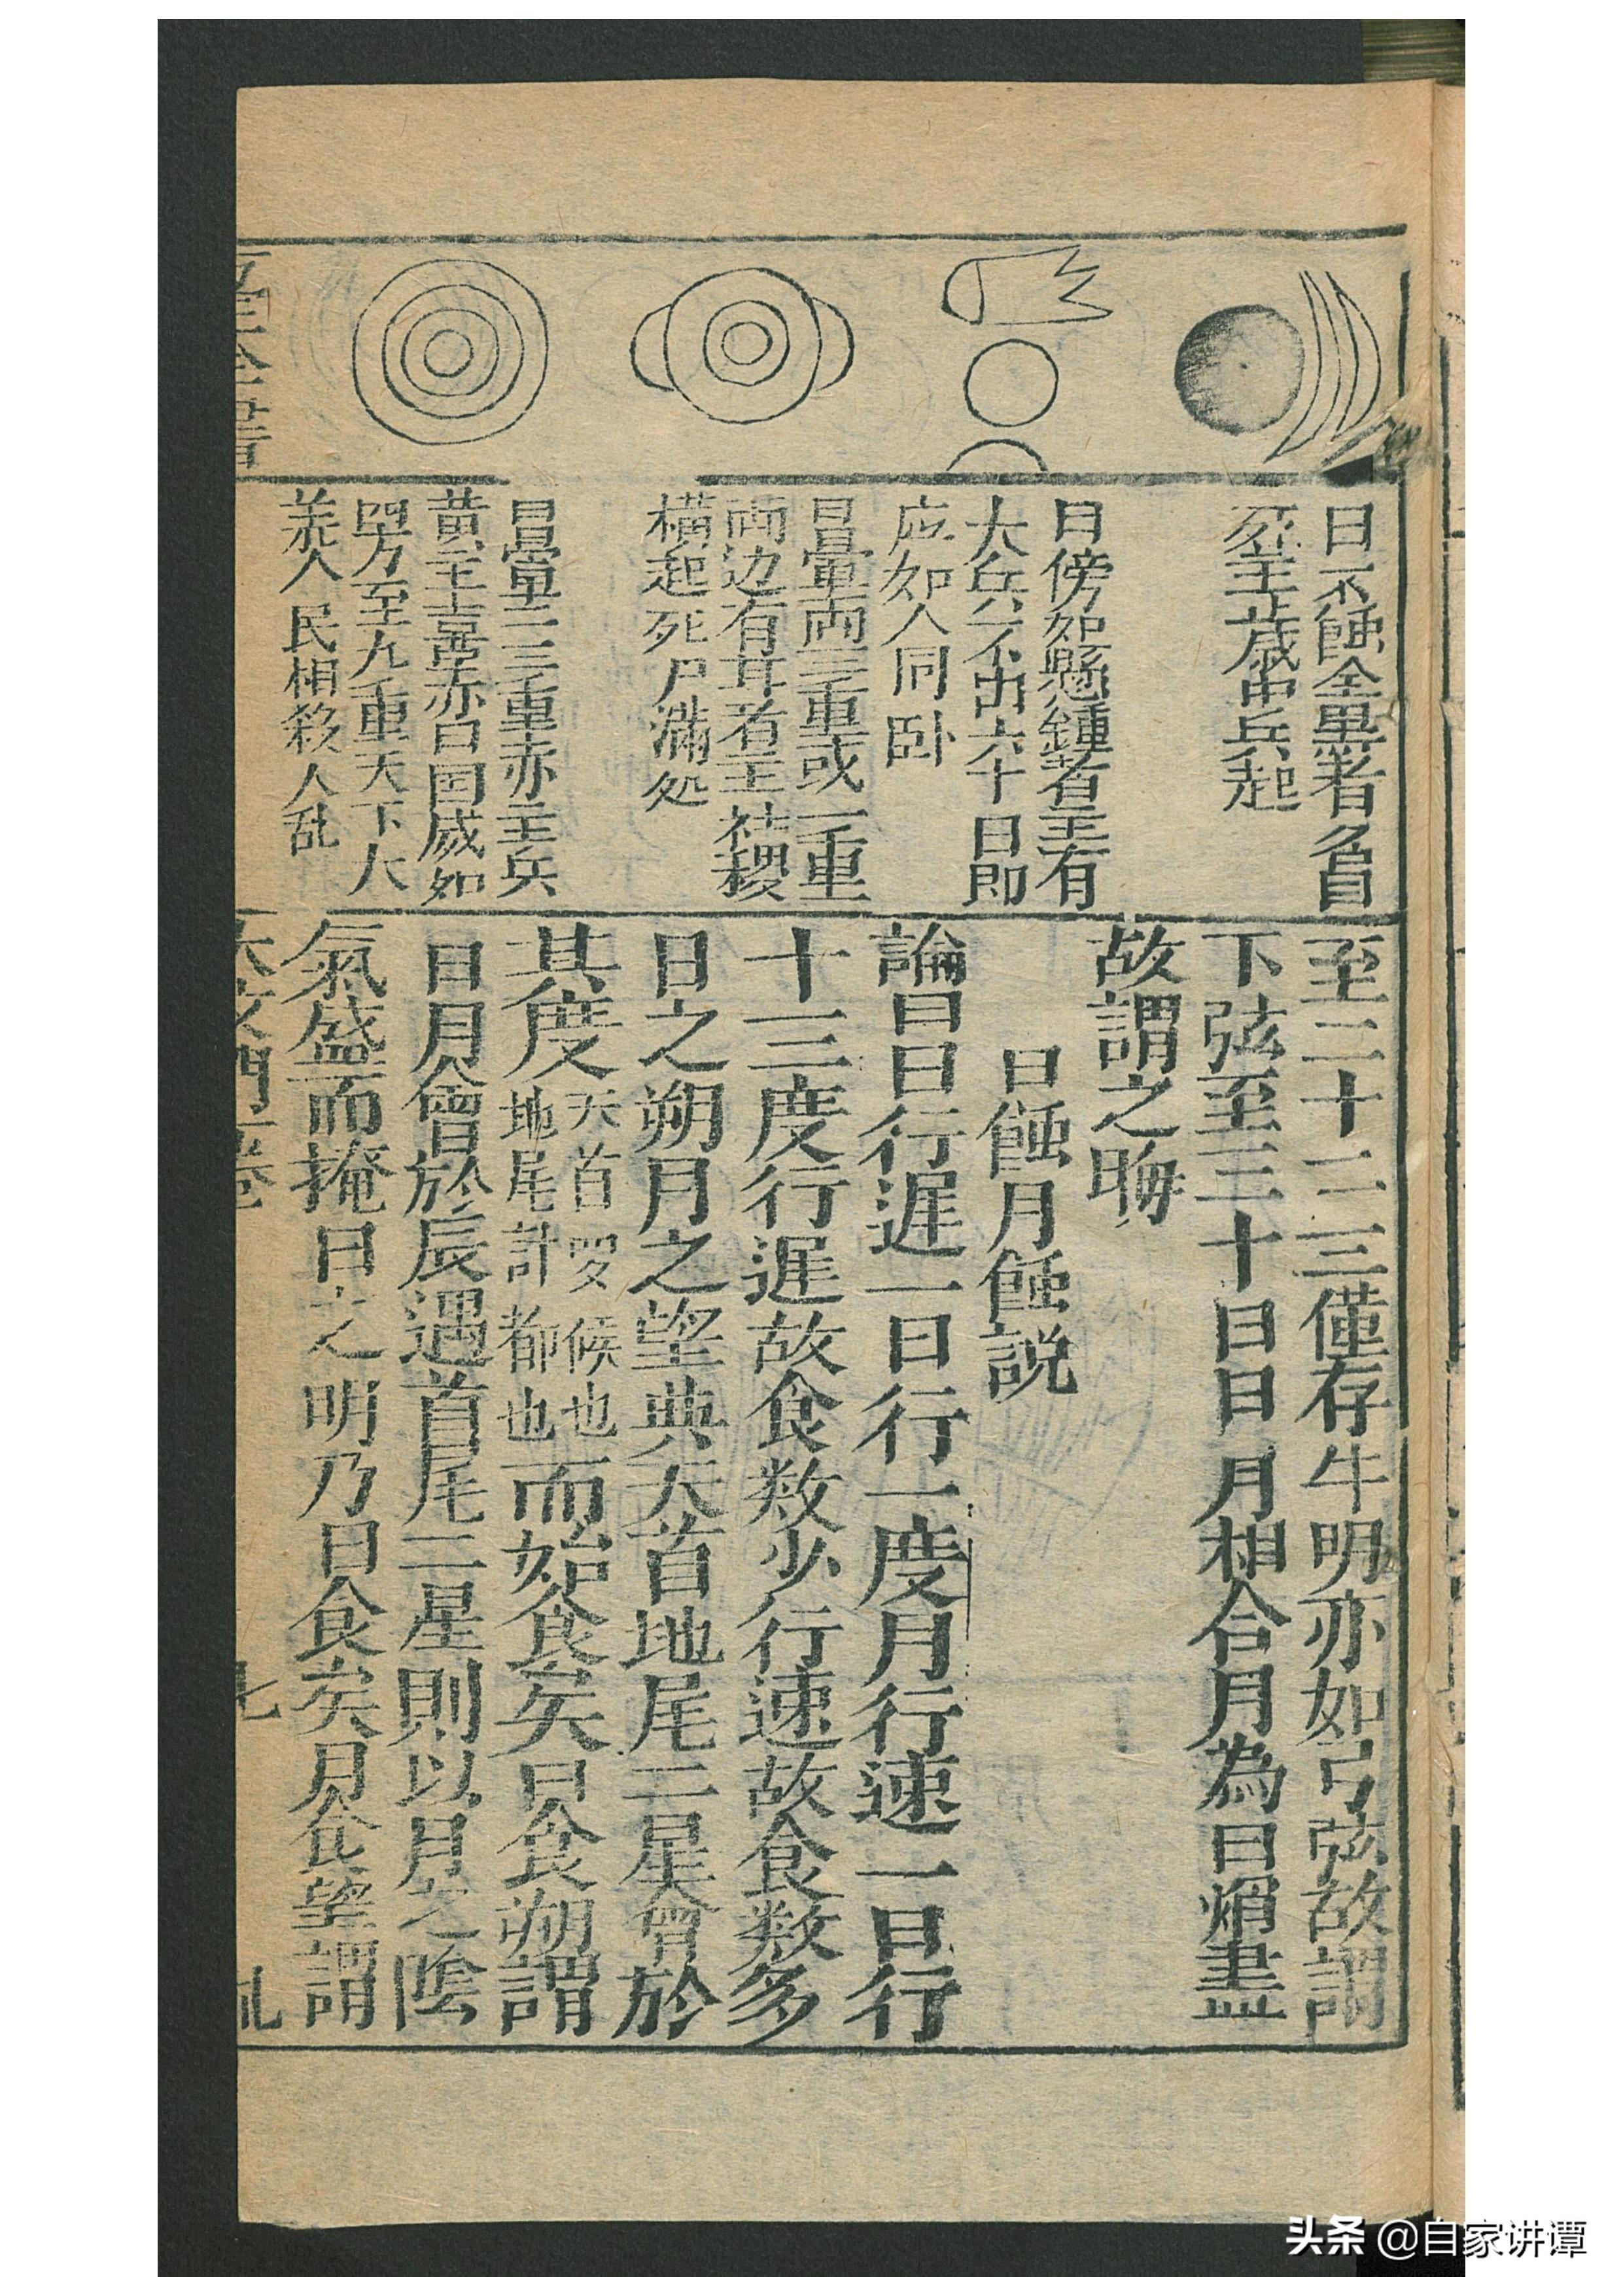 日不蝕全黒者負
死主歲中兵起
日傍如懸鍾者主有
大兵不出六十日即
应如人同卧
日暈兩三重或一重
両边有耳者主社稷
横起死尸满処
日暈二三重赤主兵
黄主喜赤白国威如
黑方至九重天下大
人民相殺人乱
至二十二三僅存牛明亦如弓弦故謂
下弦至三十日日月相合月為日焇盡
故謂之晦
日蝕月蝕説
論曰日行遲一日行一度月行速一日行
十三度行遲故食数少行速故食数多
日之朔月之望典天首地尾二星會於
其度天首罗候也
地尾計都也而始食矣日食朔謂
日月會於辰遇首尾二星則以月之陰
氣盛而掩日之明乃日食矣月食望謂
天文門一卷 七
头条 @自家讲谭